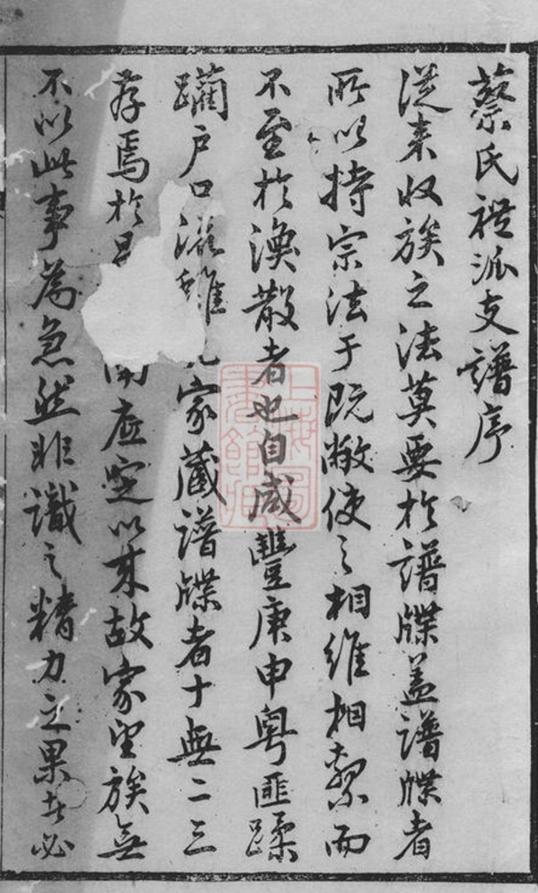 蔡氏禮派支譜序
從來收族之法莫要於譜牒蓋譜牒者
所以持宗法于既敝使之相維相繫而
不至於渙散者也自咸豐庚申粵匪蹂
躪戶口流離家藏譜牒者十無二三
存焉於是底定以來故家望族無
不以此事為急然非識之精力之果者必
上海圖書館藏